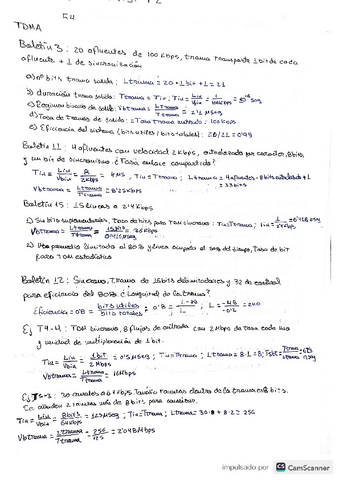 E4
TDMA
Boletín 3: 20 afluentes de 100 Kbps, trama transporte 1 bit de cada
afluente + 1 de sincronización
a) nº bits trama salida: Ltrama = 20·1bit+1 = 21
b) duración trama salida: Ttrama = Tiu; Tiu =
c) Régimen binario de salida: Vbtrama = Ltrama / Ttrama = 2'1
d) Tasa de tramas de salida:
e) Eficiencia del sistema (bits útiles / bits totales): 20/21 = 0'95
Boletín 11: 4 afluentes con velocidad 2Kbps, entrelazado por caracter, 8bits,
y un bit de sincronismo. ¿Tasa enlace compartido?
Tiu = Liu / Vbiu = 8 / 2Kbps = 4 ms, Tiu = Ttrama; Ltrama = 4 afluentes · 8 bits + 1
= 33 bits
Vbtrama = Ltrama / Ttrama = 8'25 Kbps
Boletín 15: 15 líneas a 2'4 Kbps
1) Sin bits suplementarios, Tasa de bits, para TDM síncrono: Tiu = Ttrama; Tiu =
Vbtrama = Ltrama / Ttrama = 15 bits = 36 Kbps
2) Uso promedio limitado al 80% y línea ocupada el 50% del tiempo, Tasa de bit
para TDM estadística
Boletín 12: Síncrono, Trama de 16 bits delimitadores y 32 de control
para eficiencia del 80% ¿Longitud de la trama?
Eficiencia = 0'8 = bits útiles / bits totales; 0'8 = L-48 / L; L = = 240
Ej T4-4: TDM síncrono, 8 flujos de entrada con 2 Mbps de tasa cada una
y unidad de multiplexación de 1 bit.
Tiu = Liu / Vbiu = 1bit / 2 Mbps = 0'5 Mseg; Tiu = Ttrama; Ltrama = 8·1 = 8;
Vbtrama = Ltrama / Ttrama = 16 Mbps
Ej T5-3: 30 canales a 64 Kbps. Tamaño ranuras dentro de la trama es 8 bits.
Se añaden 2 ranuras más de 8 bits para
Tiu = Liu / Vbiu = 8 bits / 64 Kbps = 125 Mseg; Tiu = Ttrama; Ltrama = 30·8 + 8·2 = 256
Vbtrama = Ltrama / Ttrama = 256 / 125 = 2'048 Mbps
impulsado por CS CamScanner